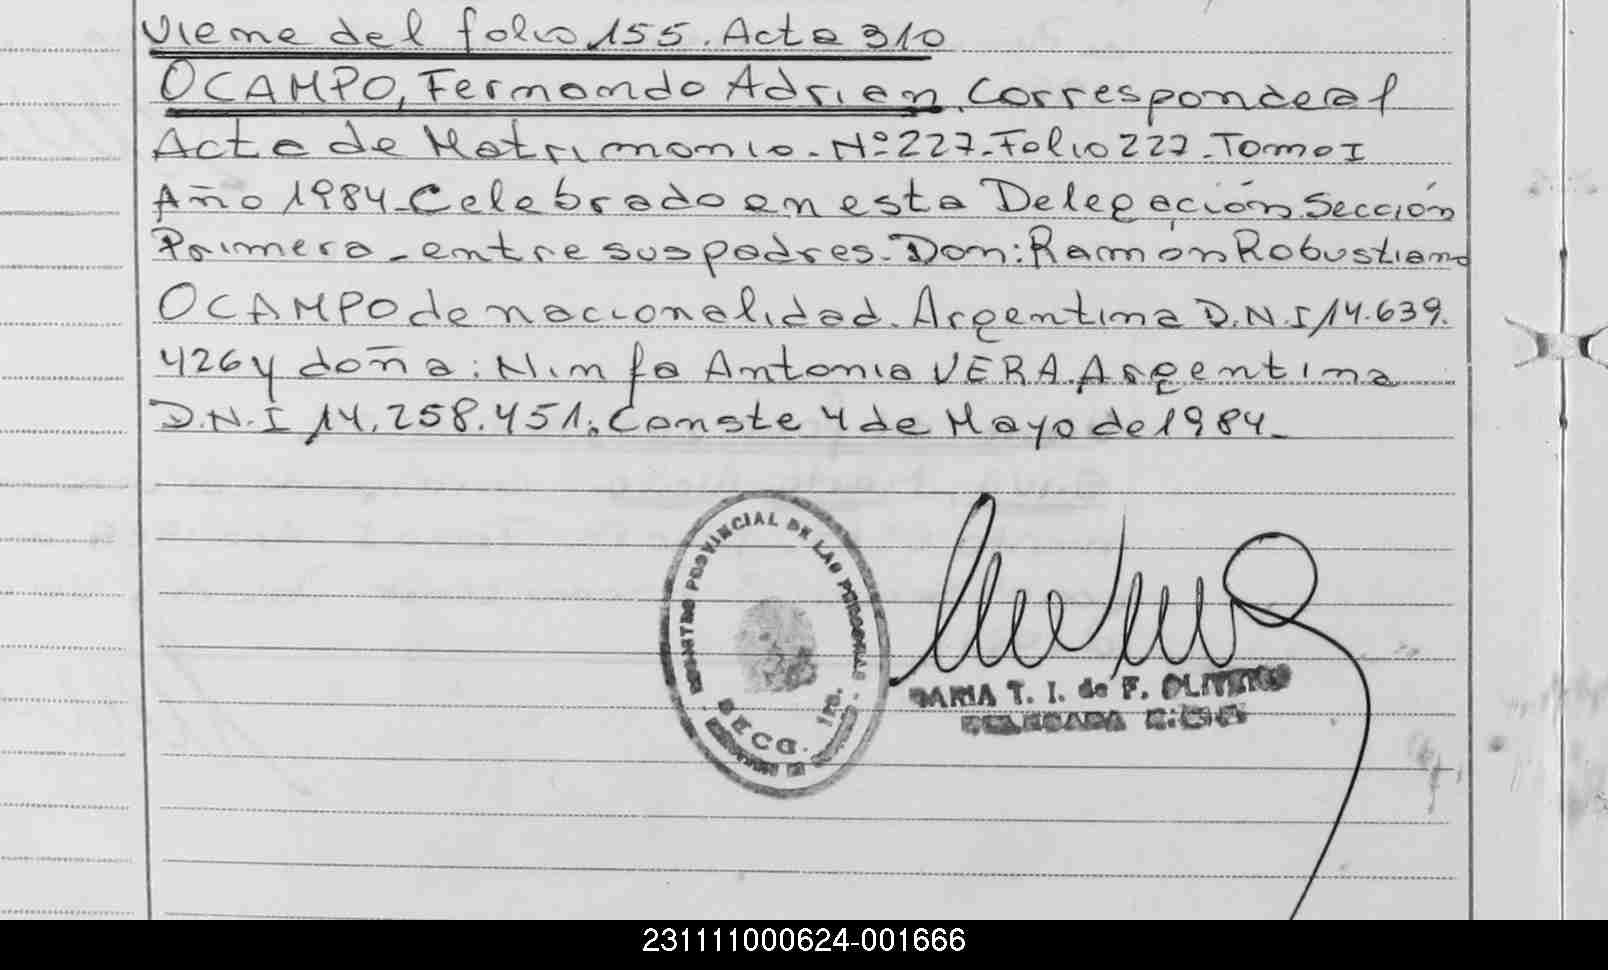 Viene del folio 155. Acta 310
OCAMPO, Fernando Adrian. Corresponde al
Acta de Matrimonio - Nº 227 - Folio 227 - Tomo I
Año 1984 - Celebrado en esta Delegación Sección
Primera - entre sus padres - Don: Ramón Robustiano
OCAMPO de nacionalidad Argentina D.N.I 14.639.
426 y doña: Ninfa Antonia VERA Argentina
D.N.I 14.258.451. Conste 4 de Mayo de 1984 -
REGISTRO PROVINCIAL DE LAS PERSONAS
SECC. 1ra.
MARIA T. I. de F. OLIVEROS
DELEGADA
231111000624-001666